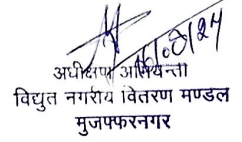 16/08/24
अधीक्षण अभियन्ता
विद्युत नगरीय वितरण मण्डल
मुजफ्फरनगर